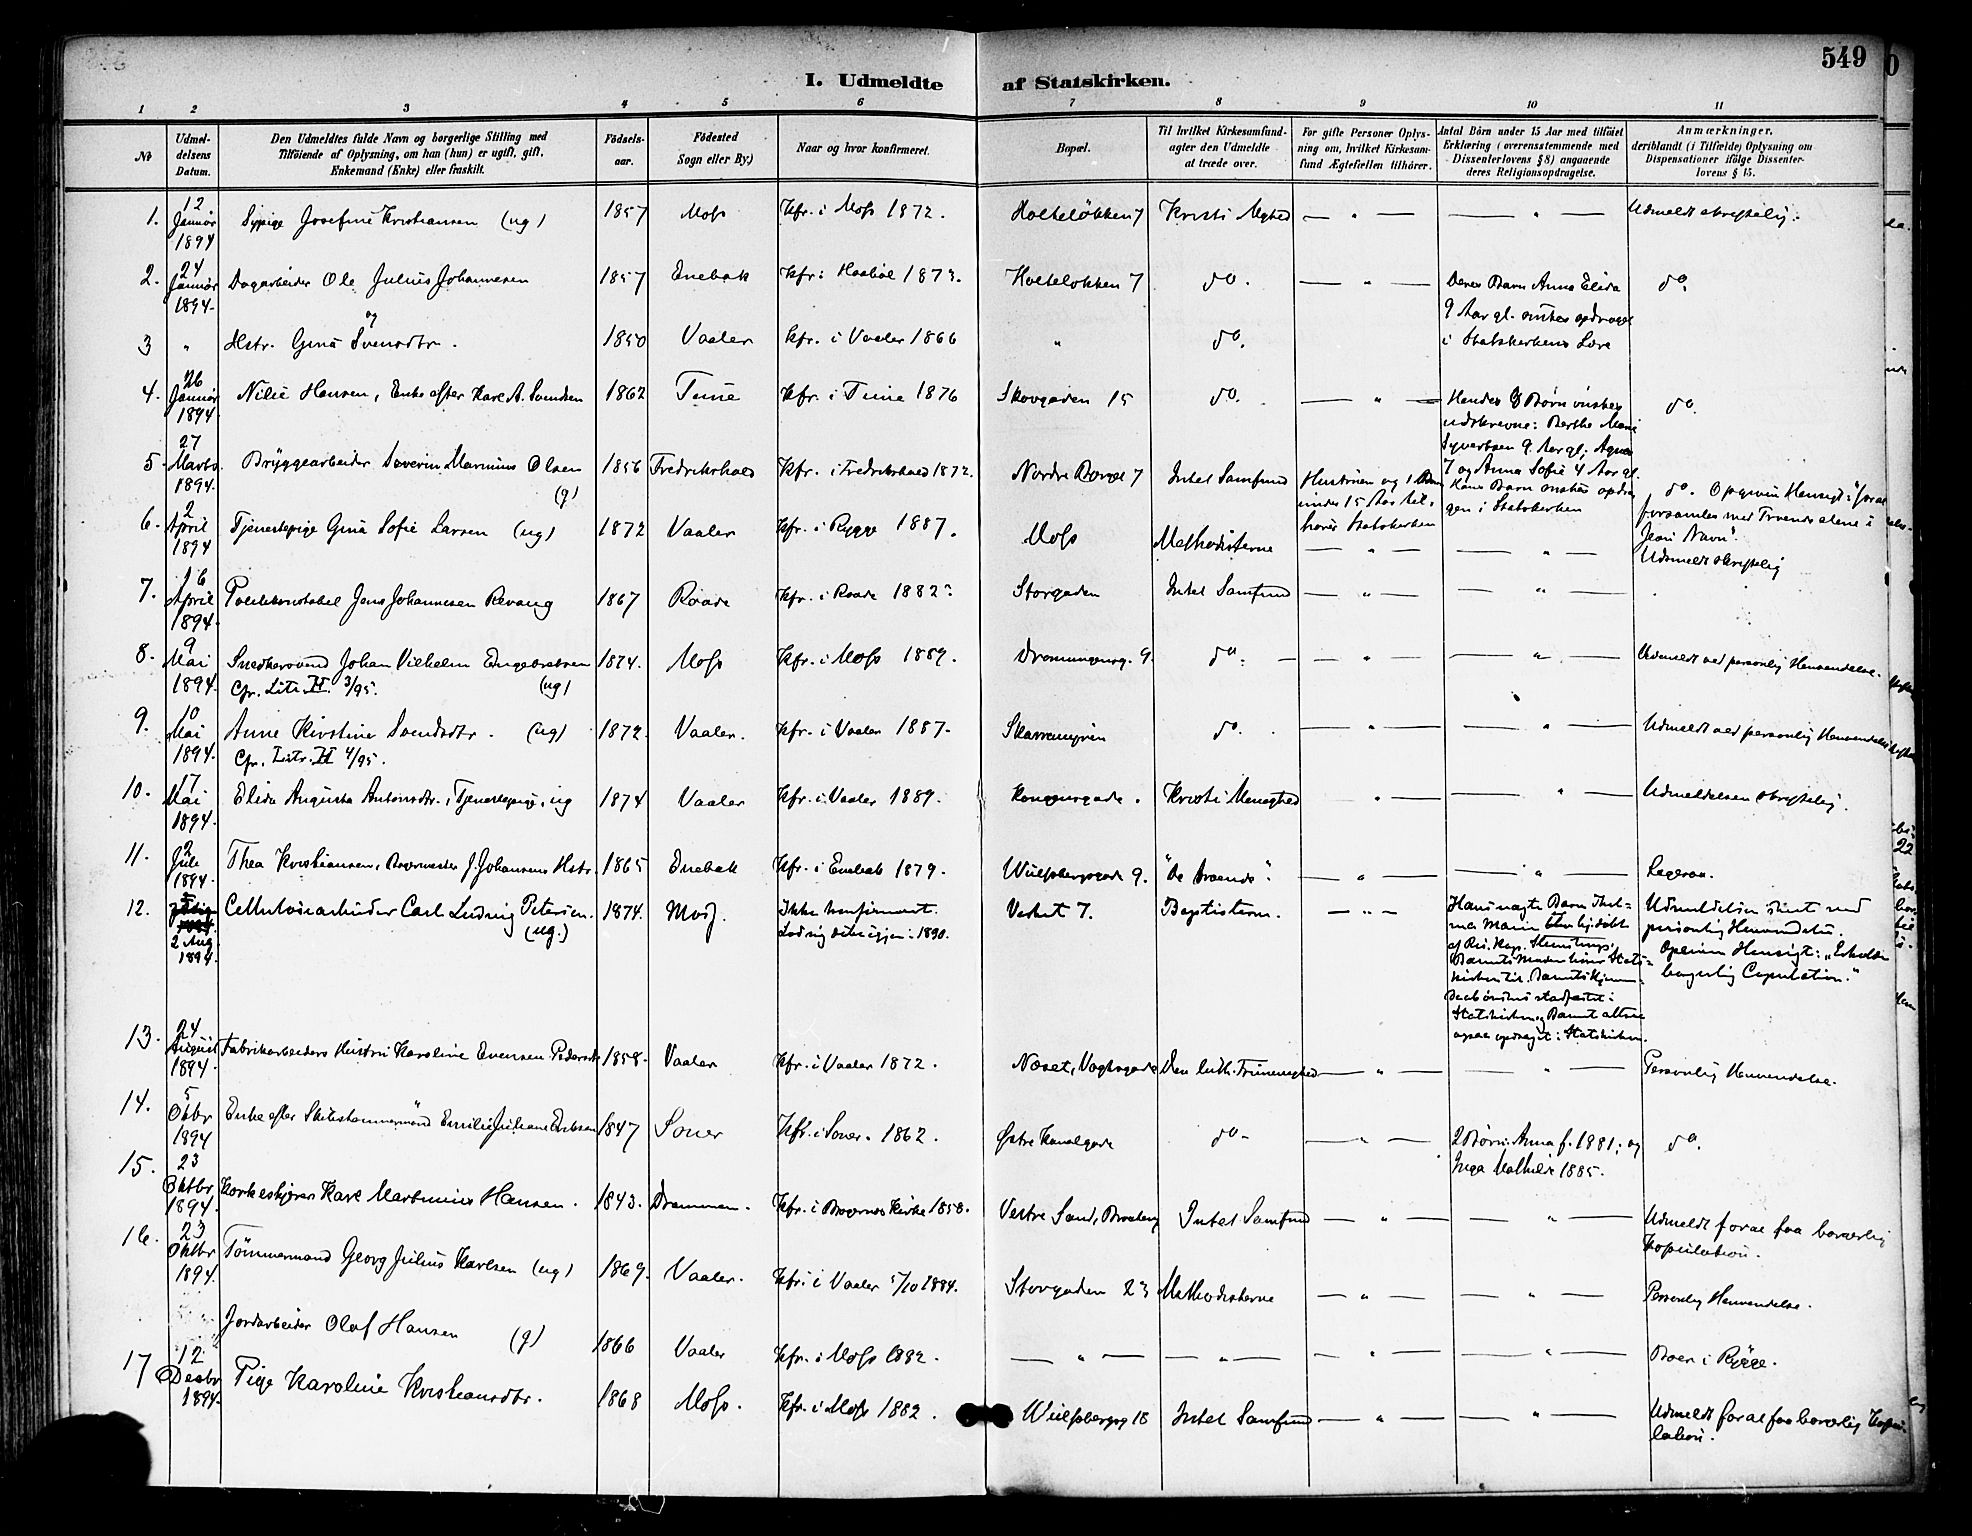 549
I. Udmeldte af Statskirken.
1 2 3 4 5 6 7 8 9 10 11
No
Udmel-
delsens
Datum.
Den Udmeldtes fulde Navn og borgerlige Stilling med
Tilföiende af Oplysning, om han (hun) er ugift, gift,
Enkemand (Enke) eller fraskilt.
Födsels-
aar.
Födested
Sogn eller By.)
Naar og hvor konfirmeret.
Bopæl.
Til hvilket Kirkesamfund-
agter den Udmeldte
at træde over.
For gifte Personer Oplys-
ning om, hvilket Kirkesam-
fund Ægtefællen tilhörer.
Antal Börn under 15 Aar med tilföiet
Erklæring (overensstemmende med
Dissenterlovens § 8) angaaende
deres Religionsopdragelse.
Anmærkninger,
deriblandt (i Tilfælde) Oplysning om
Dispensationer ifölge Dissenter-
lovens § 15.
1. 12 Januar 1894 Sypige Josefine Kristiansen (ug) 1857 Moss Kfr. i Moss 1872. Holteløkken 7 Kristi Mghed — " — — " — Udmeldt skriftelig.
2. 24 Januar 1894. Dagarbeider Ole Julius Johannesen 1857 Enebak Kfr. i 1873. Holteløkken 7 do. — " — Deres Barn Anna Elida do.
og 9 Aar gl. ønskes opdraget
3 " Hstr. Gina Svensdtr. 1850 Vaaler kfr. i Vaaler 1866 " do. i Statskirkens Lære
4. 26 Januar 1894 Nilie Hansen, Enke efter Karl A. Svendsen 1862 Tune Kfr. i Tune 1876 Skovgaden 15 do. — " — Hendes 3 Børn ønskes do.
udskrevne: Berthe Marie
Syvertsen 9 Aar gl., Agnes
7 og Anna Sofie 4 Aar gl.
5. 27 Marts 1894. Bryggearbeider Severin Marinius Olsen (g) 1856 Fredrikshald Kfr. i Fredrikshald 1872. Nordre 7 Intet Samfund Hustruen og 1 Barn
under 15 Aar til-
hører Statskirken
Hans Barn ønskes opdra
gen i Statskirken
do. Opgiven Hensigt: "for at
forsamles med Troende alene i
Jesu Navn".
6. 2 April 1894 Tjenestepige Gina Sofie Larsen (ug) 1872 Vaaler Kfr. i Rygge 1887. Moss Methodisterne — " — — " — Udmeldt skriftelig
7. 16 April 1894. Politikonstabel Jens Johannesen Revaug 1867 Raade Kfr. i Raade 1882? Storgaden Intet Samfund — " — — " —
8. 9 Mai 1894. Snedkersvend Johan Vilhelm Engebretsen (ug) 1874. Moss Kfr. i Moss 1889. Dronningensg. 9. do. — " — — " — Udmeldt ved personlig Henvendelse.
Cfr. Litr. II. 3/95.
9. 10 Mai 1894. Anne Kirstine Svendsdtr. (ug) 1872. Vaaler. Kfr. i Vaaler 1887. do. — " — — " — Udmeldt ved personlig Henvendelse
Cfr. Litr. II 4/95.
10. 17 Mai 1894. Elida Augusta Antonsdtr., Tjenestepige, ug 1874 Vaaler Kfr. i Vaaler 1889. Kongensgade. Kristi Menighed " — — " — Udmeldelsen skriftelig.
11. 2 Juli 1894. Thea Kristiansen, J. Johansens Hstr. 1865 Enebak Kfr. i Enebak 1879. Wulfsbergsgade 9. "De troende". — " — — " —
12. 2 Aug. 1894. Cellulosearbeider Carl Ludvig Petersen. (ug.) 1874. Moss. Ikke konfirmeret. Verket 7. Baptisterne. — " — Hans uægte Barn
Udmeldelsen skeet ved
personlig Henvendelse.
Opgiven Hensigt: "Erholde
borgerlig Copulation."
Statskirken, Barnet altsaa
ogsaa opdraget i Statskirken.
13. 24 August 1894. Fabrikarbeiders Hustru Karoline Evensen Pedersdtr 1858. Vaaler Kfr. i Vaaler 1872. Næset, Vogtsgade Den luth. Frimenighed — " — — " — Personlig Henvendelse.
14. 5 Oktbr 1894 Enke efter Skibstømmermand Emilie Juliane Eriksen 1847 Soner Kfr. i Soner. 1862. Østre Kanalgade do — " — 2 Børn: Anna f. 1881; og do.
Inga Mathilde 1885.
15. 23 Oktbr. 1894. Korkeskjærer Karl Martinius Hansen. 1843. Drammen. Kfr. i Bragernes Kirke 1858. Vestre Sand, Intet Samfund — " — — " — Udmeldt for at faa borgerlig
Kopulation.
16. 23 Oktbr 1894. Tømmermand Georg Julius Karlsen (ug) 1869. Vaaler. Kfr. i Vaaler 5/10 1884. Storgaden 23 Methodisterne — " — — " — Personlig Henvendelse.
Jordarbeider Olaf Hansen (g) 1866 Vaaler Kfr. i Moss 1882. — " — — " — — " — — " — Boer i Rygge.
17 12 Decbr 1894. Pige Karoline Kristiansdtr. 1868 Moss. Kfr. i Moss 1882. Wulfsbergsg 18 Intet Samfund — " — — " — Udmeldt for at faa borgerlig Kopu-
lation.